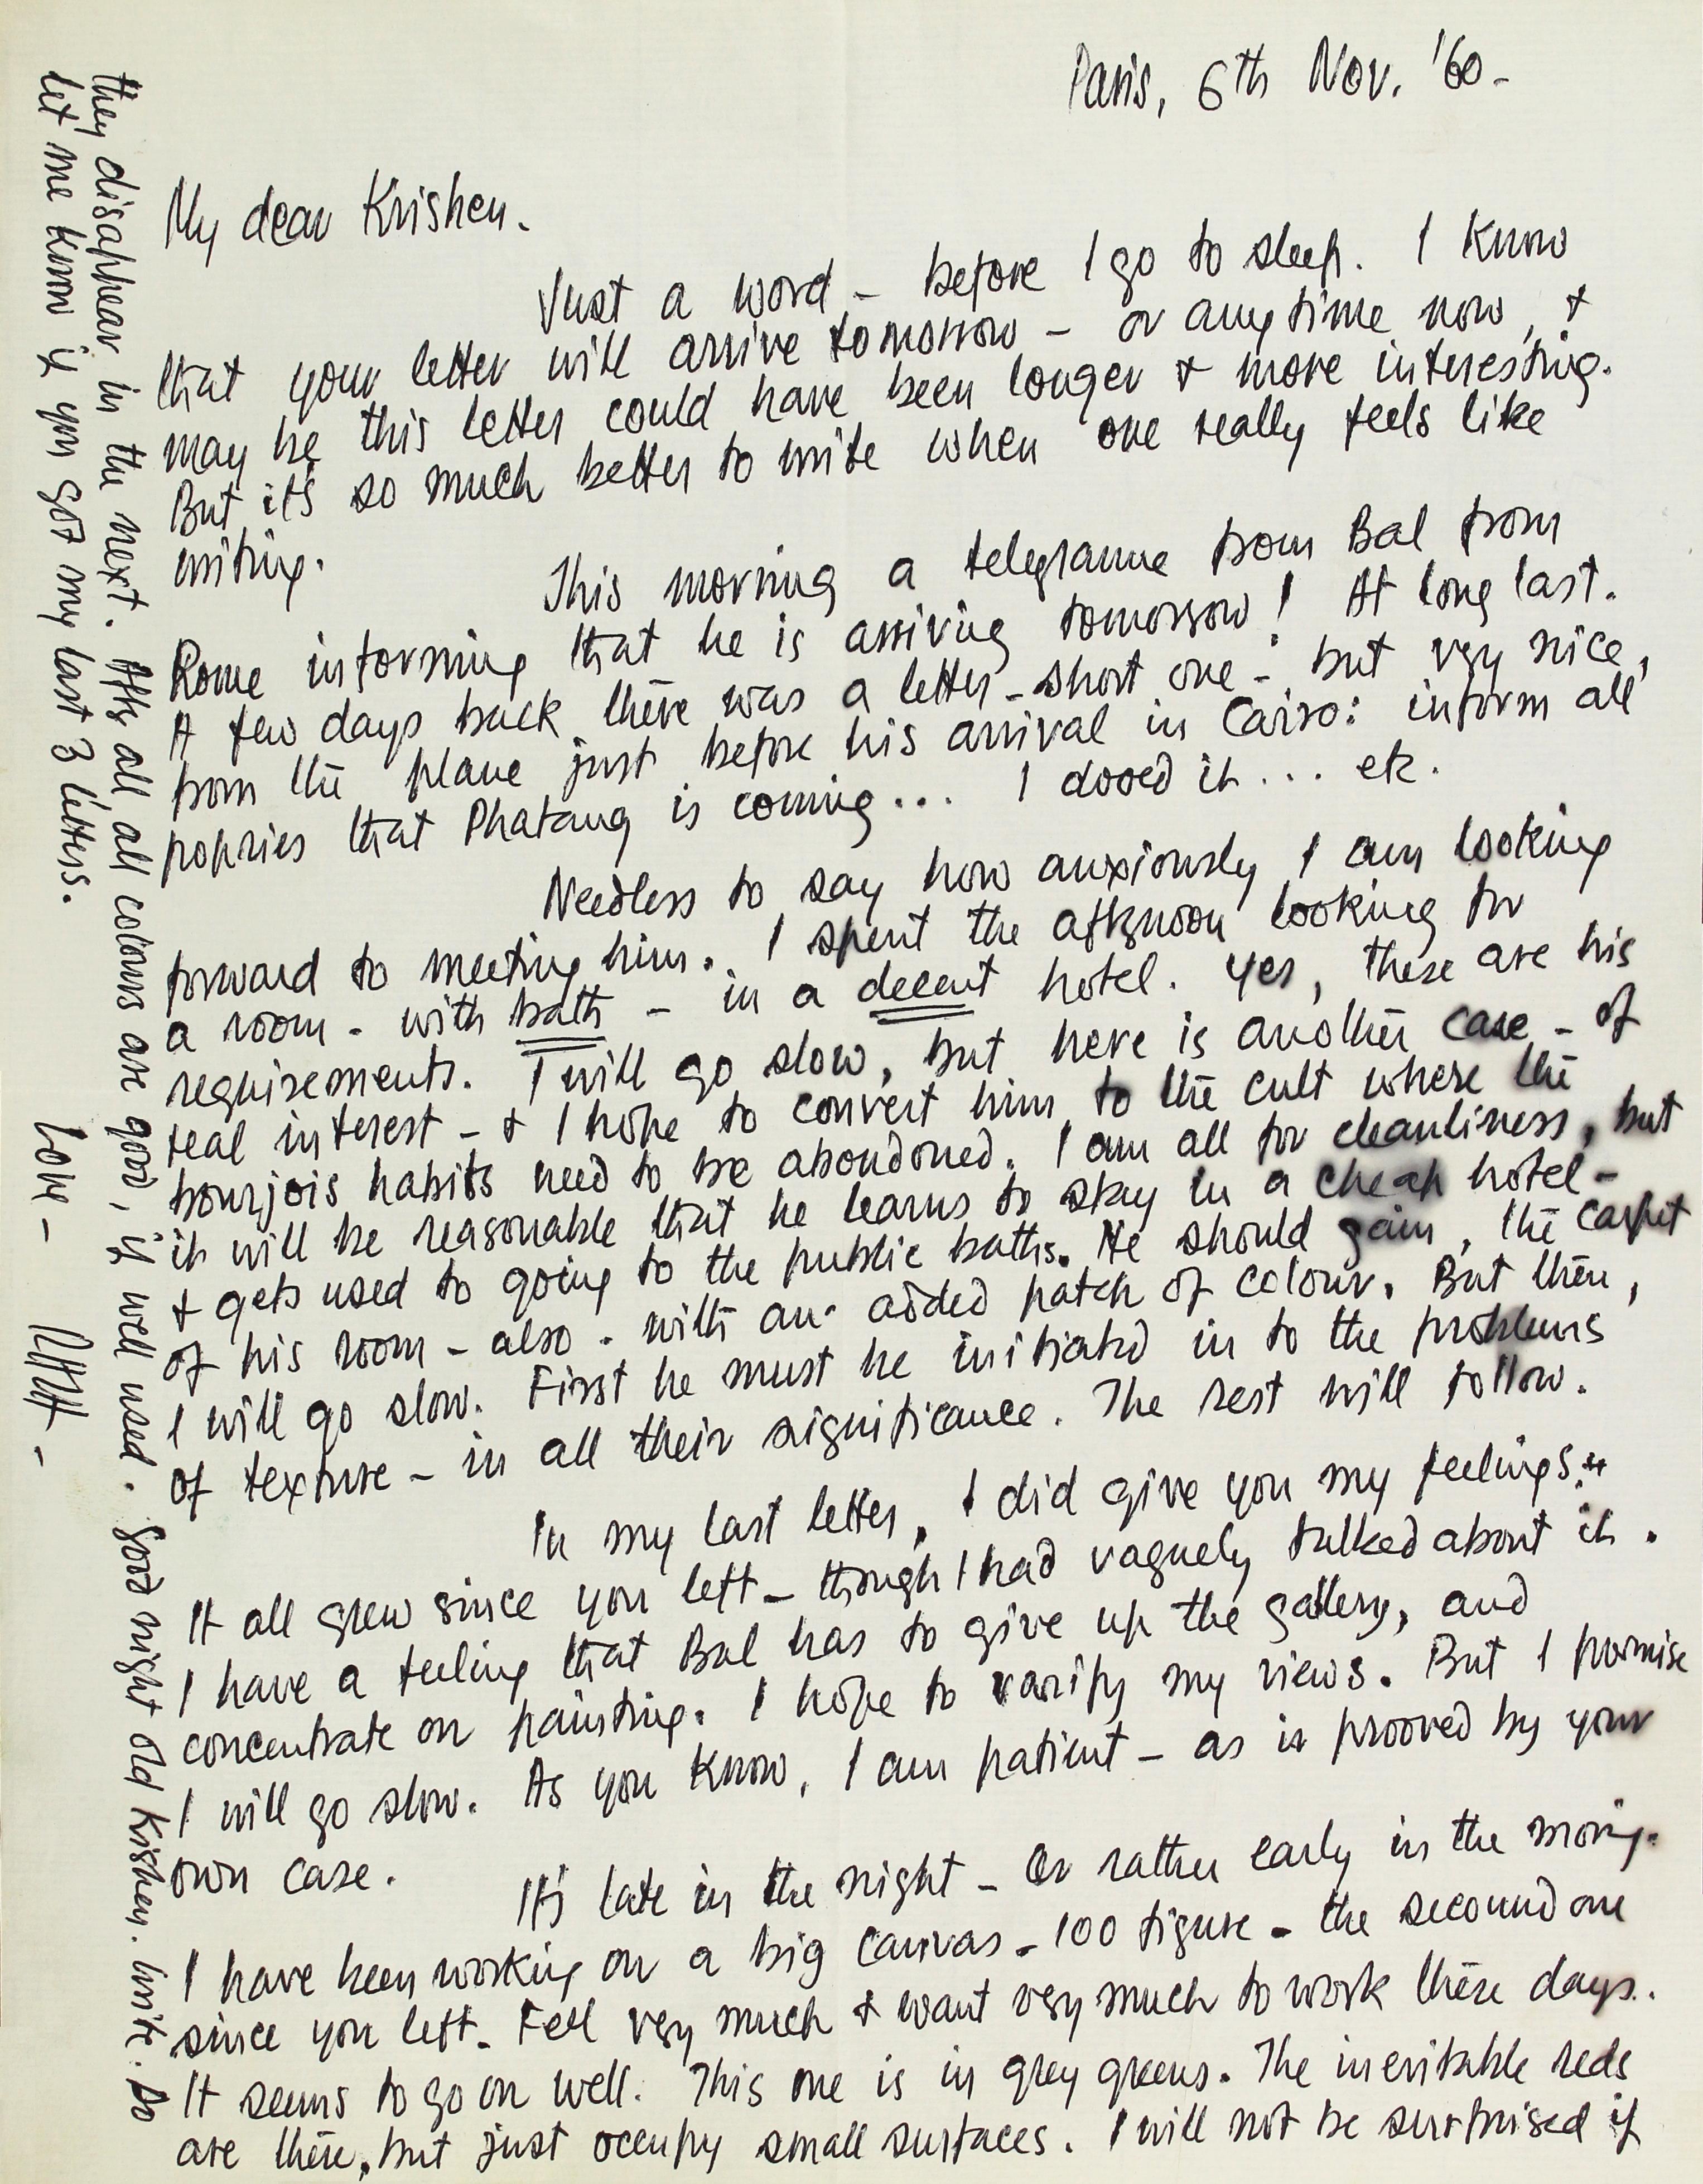 Paris, 6th Nov. '60 -
My dear Krishen.
Just a word - before I go to sleep. I know
that your letter will arrive tomorrow - or anytime now, &
may be this letter could have been longer & more interesting.
But it's so much better to write when one really feels like
writing.
This morning a telegramme from Bal from
Rome informing that he is arriving tomorrow! At long last.
A few days back there was a letter - short one - but very nice,
from the plane just before his arrival in Cairo: inform all
popsies that Phatang is coming... I dooed it... etc.
Needless to say how anxiously I am looking
forward to meeting him. I spent the afternoon looking for
a room - with bath - in a decent hotel. Yes, these are his
requirements. I will go slow, but here is another case - of
real interest - & I hope to convert him to the cult where the
bourjois habits need to be abondoned. I am all for cleanliness, but
it will be reasonable that he learns to stay in a cheap hotel -
& gets used to going to the public baths. He should gain, the carpet
of his room - also - with an added patch of colour. But then,
I will go slow. First he must be initiated in to the problems
of texture - in all their significance. The rest will follow.
In my last letter, I did give you my feelings.
It all grew since you left - though I had vaguely talked about it.
I have a feeling that Bal has to give up the gallery, and
concentrate on painting. I hope to varify my views. But I promise
I will go slow. As you know, I am patient - as is prooved by your
own case.
It's late in the night - Or rather early in the morning.
I have been working on a big canvas - 100 figure - the secound one
since you left. Feel very much & want very much to work these days.
It seems to go on well. This one is in grey greens. The inevitable reds
are there, but just occupy small surfaces. I will not be surprised if
they disappear in the next. After all, all colours are good, if well used. Good night old Krishen. Write. Do
let me know if you got my last 3 letters.
Love -